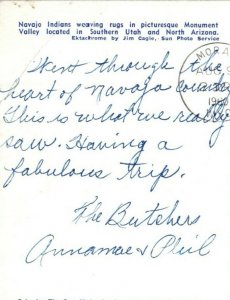 Navajo Indians weaving rugs in picturesque Monument
Valley located in Southern Utah and North Arizona.
Ektachrome by Jim Cagle, Sun Photo Service
Went through the
heart of Navajo
This is what we really
saw. Having a
fabulous trip.
The Butchers
Annamae & Phil
MORA
AUG
1960